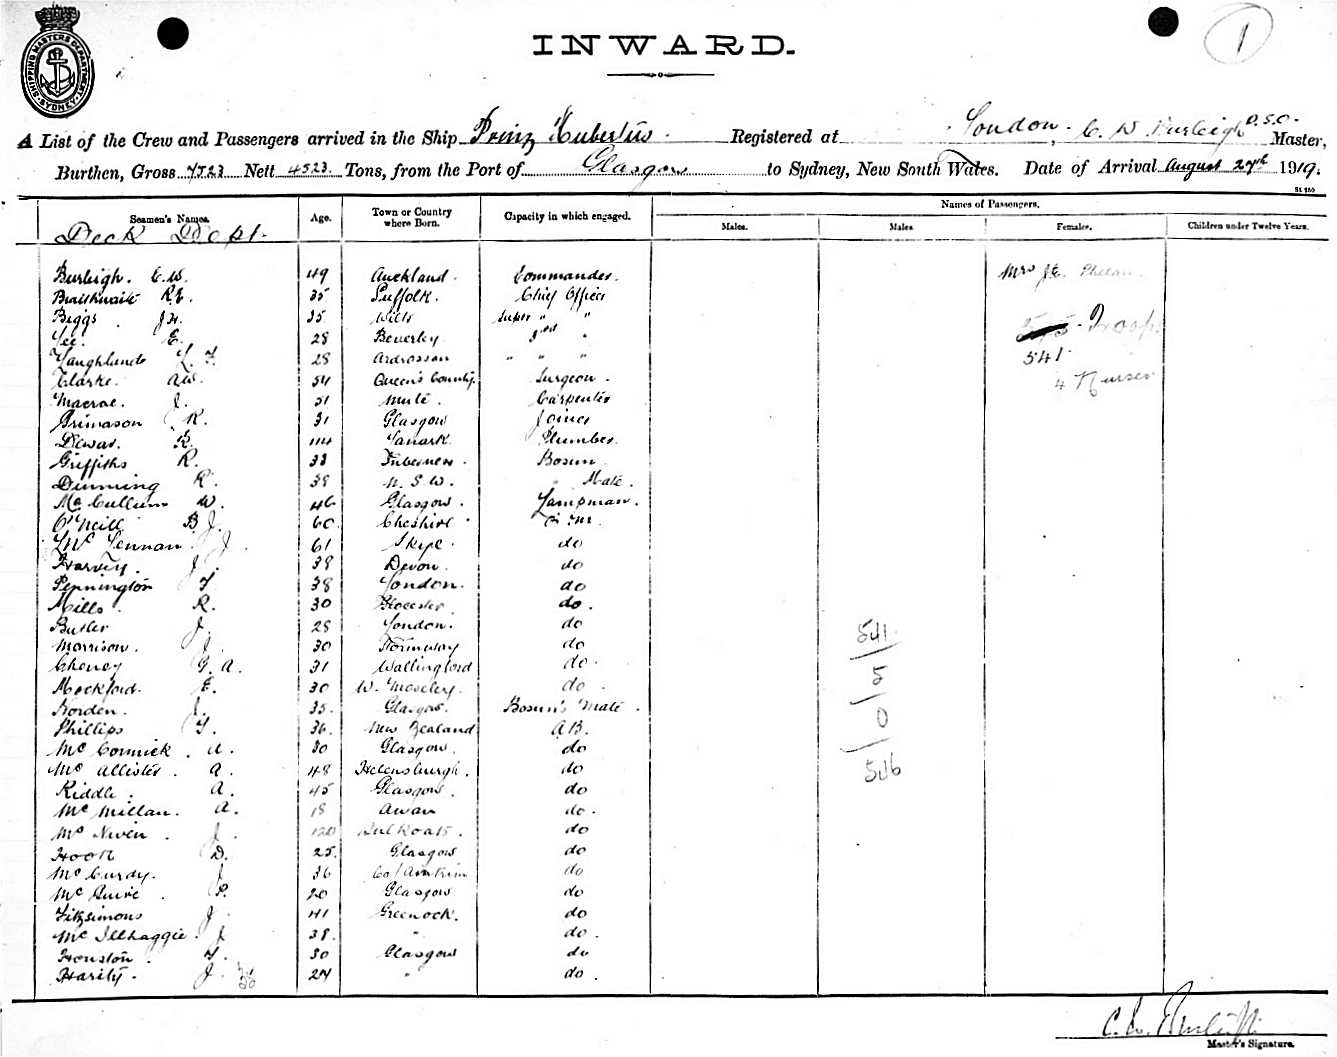 SHIPPING MASTERS DEPARTMENT SYDNEY
1
INWARD.
A List of the Crew and Passengers arrived in the Ship Prinz Hubertus Registered at London, C. W. Burleigh D.S.O. Master,
Burthen, Gross 4523 Nett 4523 Tons, from the Port of Glasgow to Sydney, New South Wales. Date of Arrival August 27th 1919.
Seamen's Names. Age. Town or Country where Born. Capacity in which engaged. Names of Passengers.
Males. Males Females. Children under Twelve Years.
Deck Dept.
Burleigh. C.W. 49 Auckland. Commander. Mrs J.E. Phelan
Braithwaite R.E. 35 Suffolk. Chief Officer
Biggs. J.H. 35 Wilts Super " "
Lee. E. 28 Beverley 2nd " Troops
L. F. 28 Ardrossan " " " 541
Clarke. A.W. 54 Queen's County. Surgeon. 4 Nurses
Macrae. J. 51 Mull. Carpenter
Grimason R. 31 Glasgow Joiner
Dewar. R. 44 Lanark. Plumber.
Griffiths R. 33 Inverness. Bosun
Dunning R. 38 N.S.W. " Mate.
McCullum W. 46 Glasgow. Lampman.
O'Neill B J. 60 Cheshire Q.M.
McLennan J. 61 Skye. do
Harvey. J. 38 Devon. do
Pennington F 38 London. do
Mills. R. 30 Glocester do.
Butler J. 28 London. do
Morrison. J. 30 do
Cheney G.A. 31 Wallingford do.
Mockford. E. 30 W. Moseley. do.
J. 35. Glasgow. Bosun's Mate.
Phillips F. 36. New Zealand A.B.
McCormick. A. 30 Glasgow. do
McAllister. A. 48 Helensburgh. do
Riddle. A. 45 Glasgow. do
McMillan. A. 18 do.
McNiven. J. do
Hook D. 25. Glasgow do
McCurdy. J 36 Co/Antrim do
McGuire. P. 20 Glasgow do
Fitzsimons J. 41 Greenock. do
J 38. " do.
Houston. F. 30 Glasgow do
J. 24 " do.
541
5
0
546
Master's Signature.